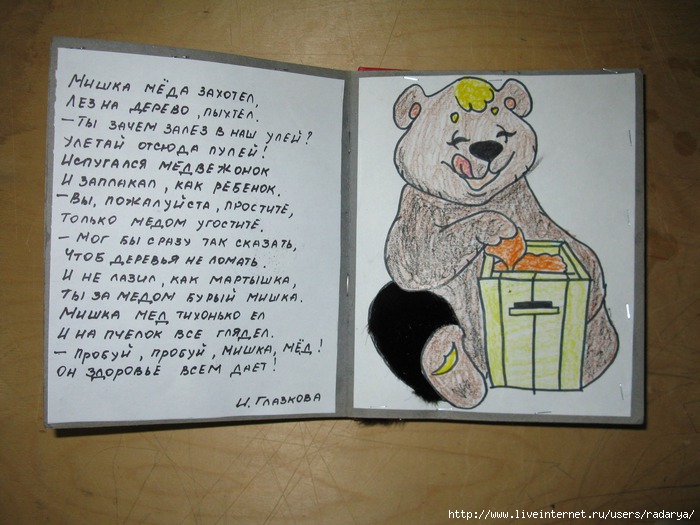 Мишка мёда захотел,
Лез на дерево, пыхтел.
– Ты зачем залез в наш улей?
Улетай отсюда пулей!
Испугался медвежонок
И заплакал, как ребёнок.
– Вы, пожалуйста, простите,
Только медом угостите.
– Мог бы сразу так сказать,
Чтоб деревья не ломать.
И не лазил, как мартышка,
Ты за медом бурый мишка.
Мишка мед тихонько ел
И на пчелок все глядел.
– Пробуй, пробуй, мишка, мёд!
Он здоровье всем дает!
И. Глазкова
http://www.liveinternet.ru/users/radarya/